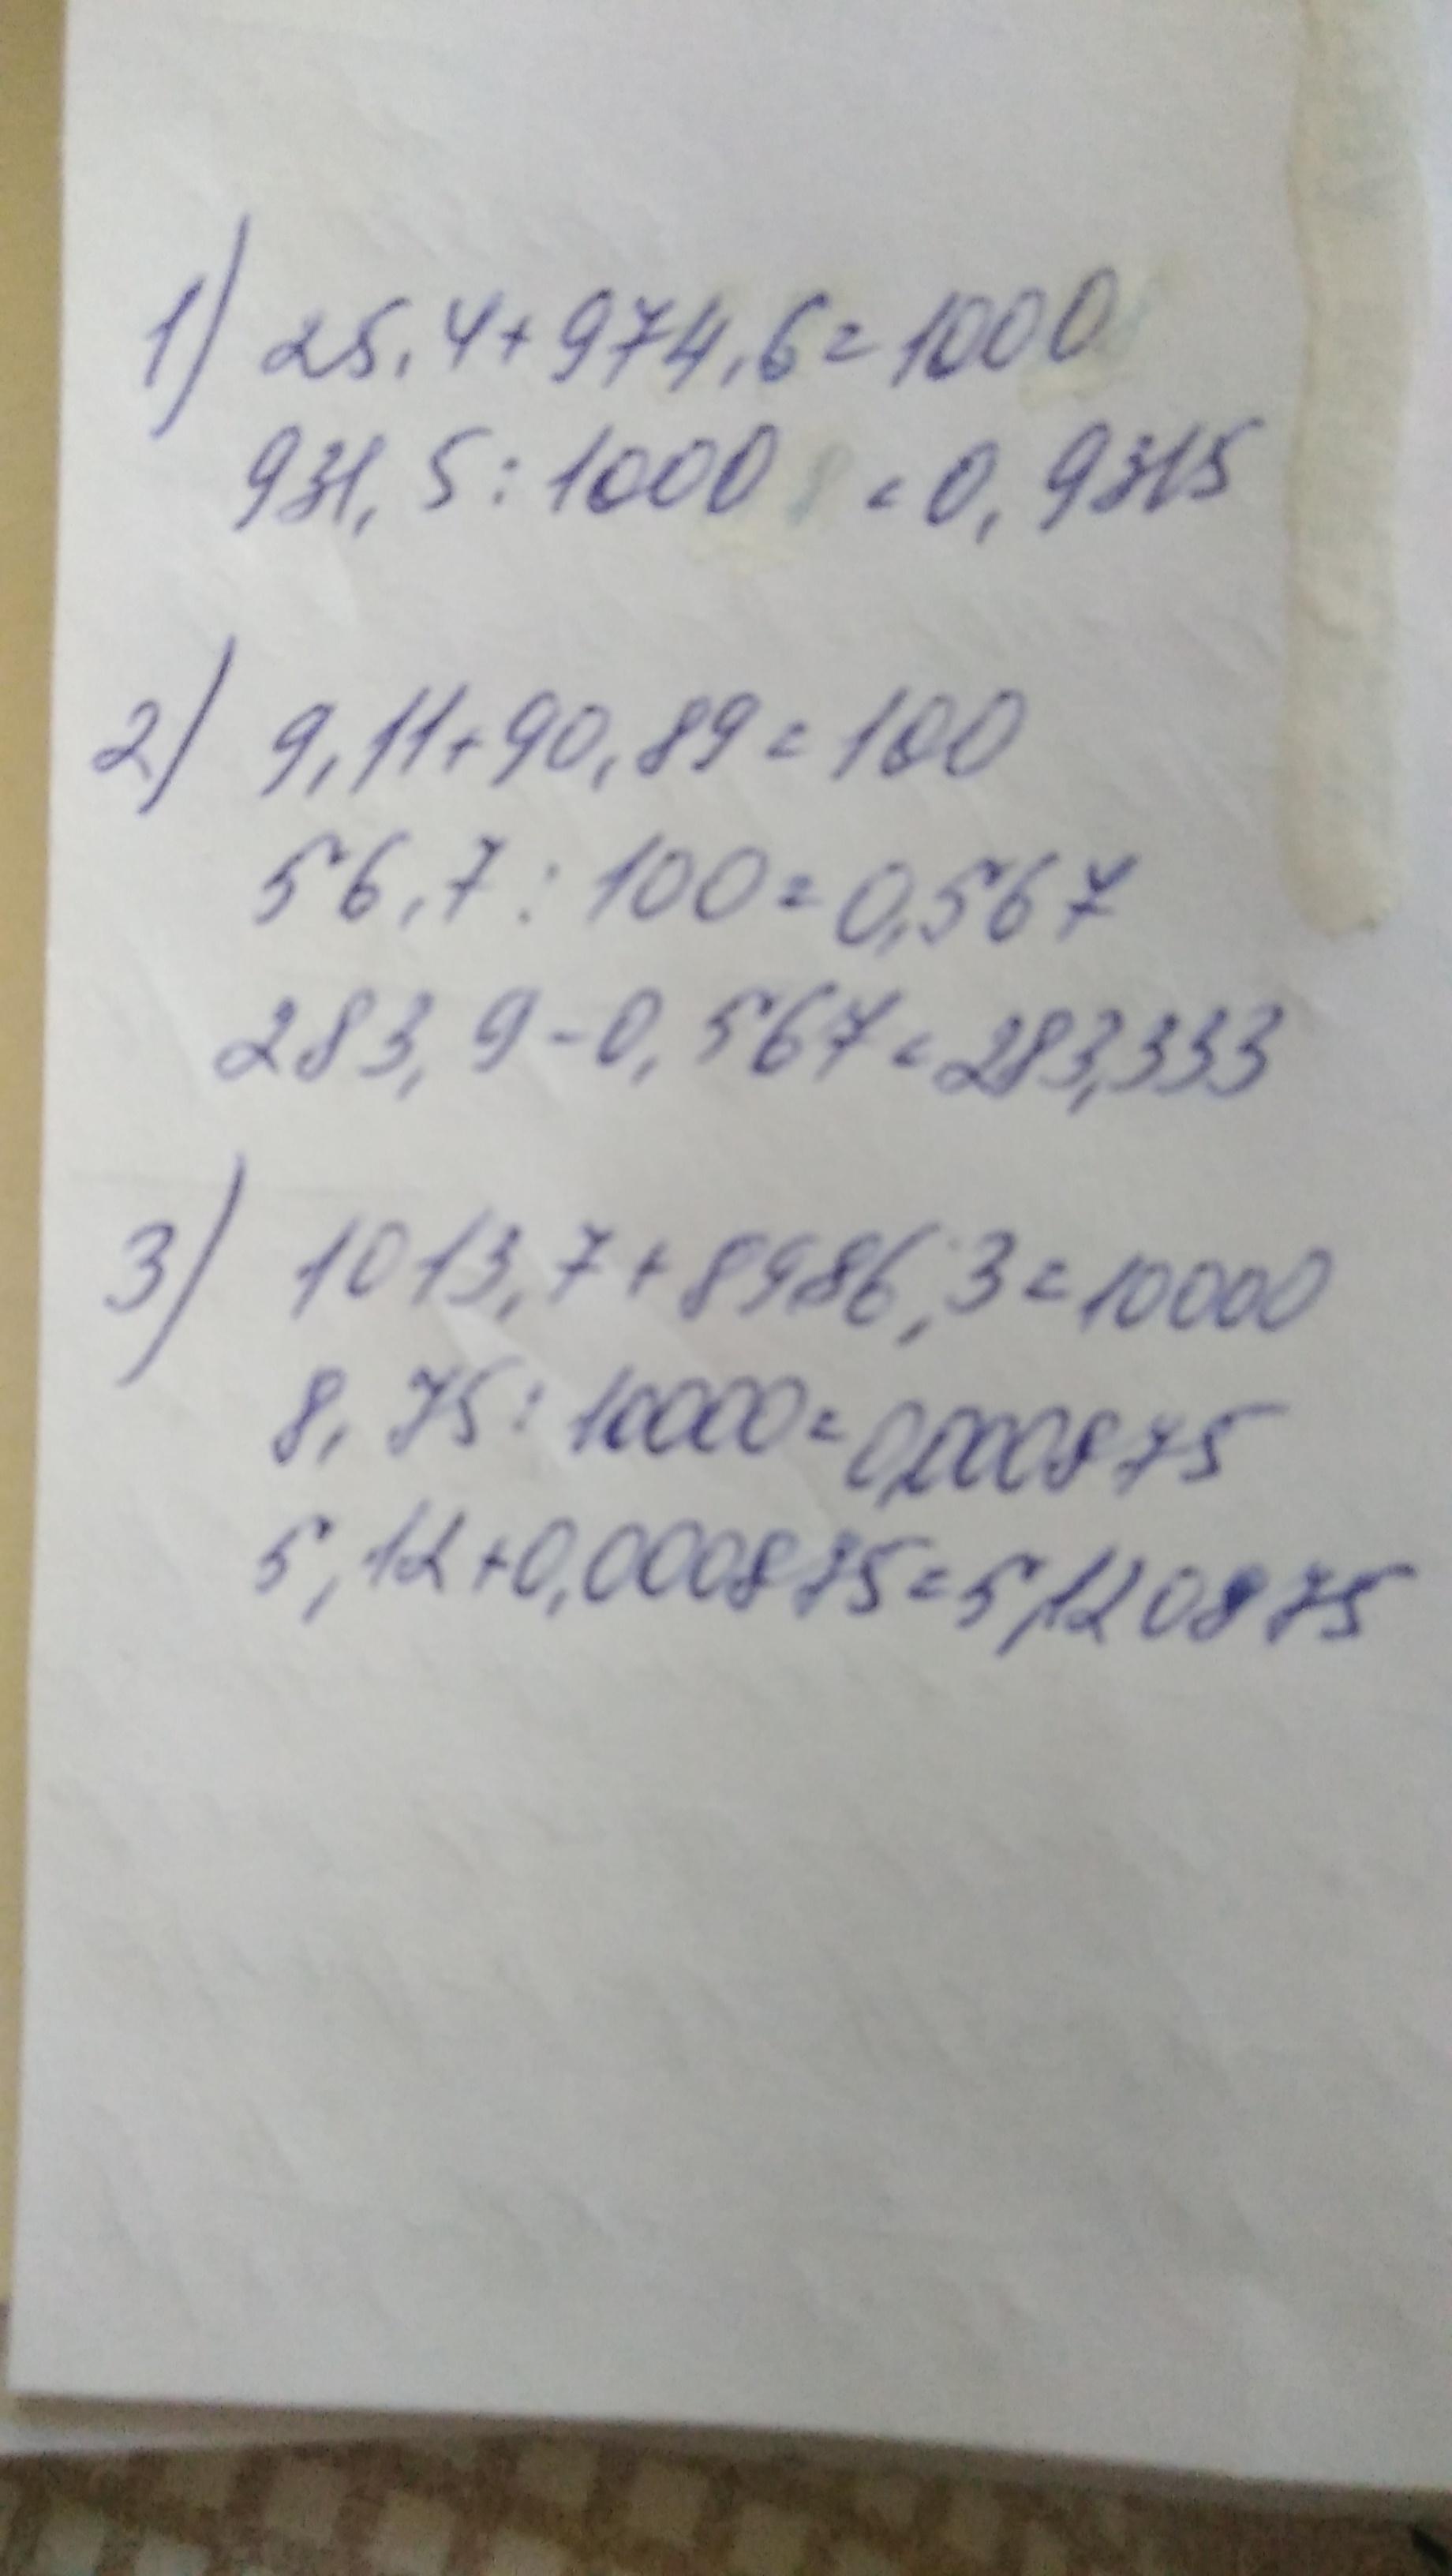 1) 25,4+974,6=1000
931,5:1000 =0,9315
2) 9,11+90,89=100
56,7:100=0,567
283,9-0,567=283,333
3) 1013,7+8986,3=10000
8,75:10000=0,000875
5,12+0,000875=5,120875